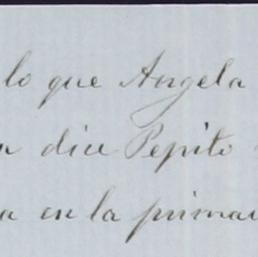 lo que Angela
n dice Pepito
a en la primav